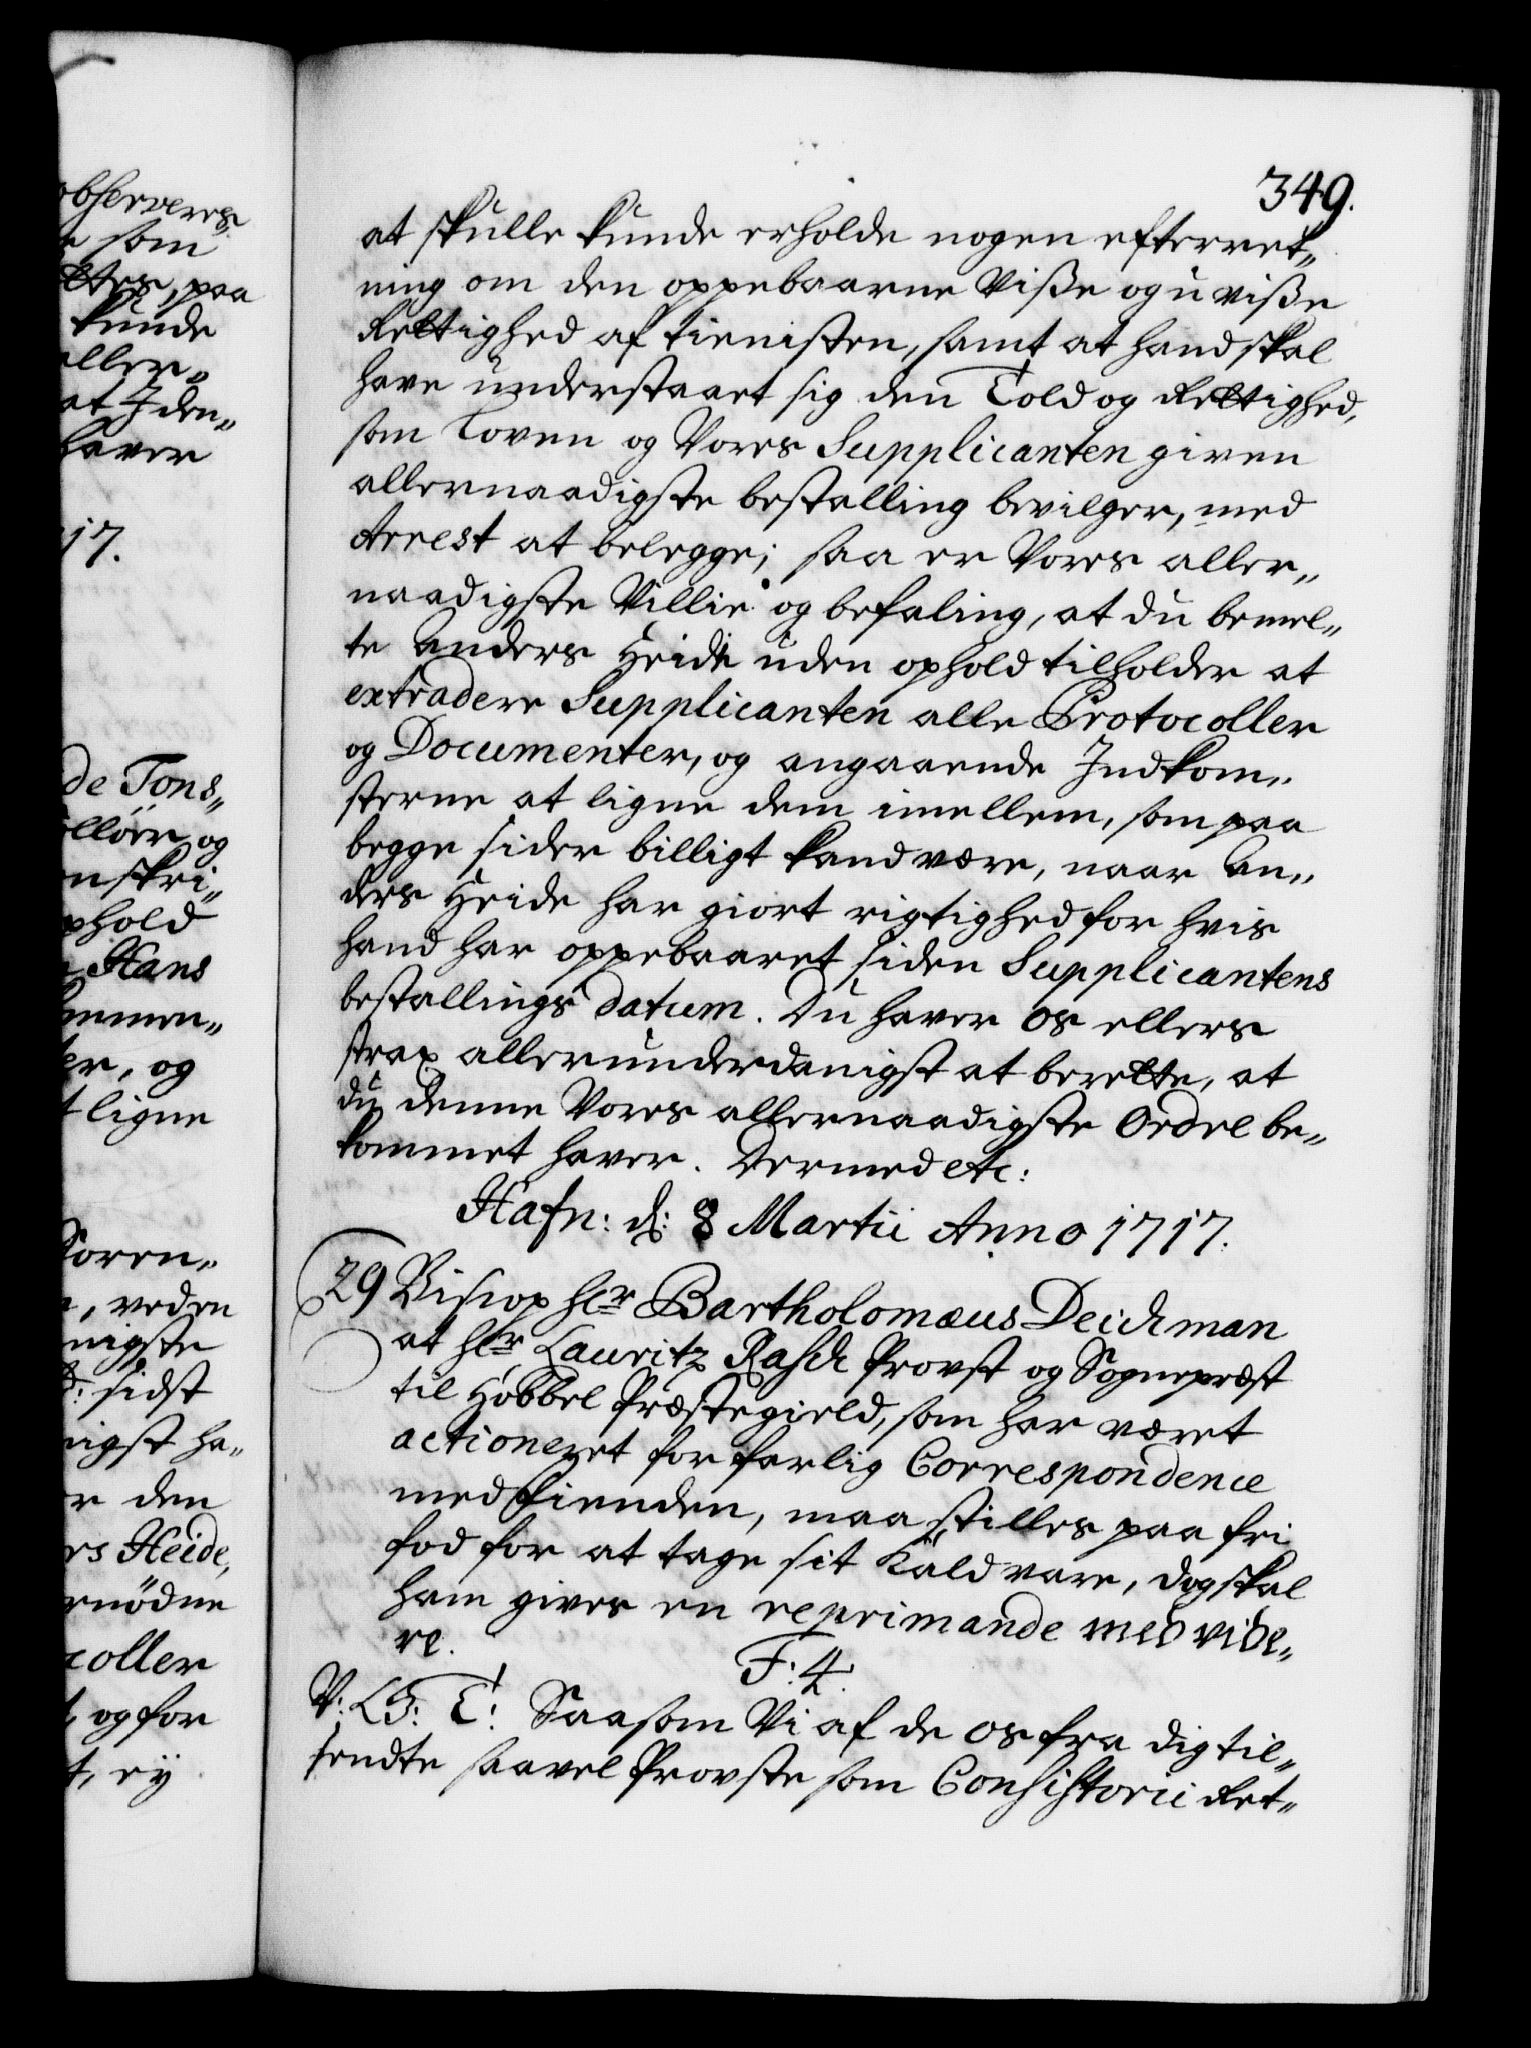 observeres
som
ettes, paa
kunde
eller„
at Iden„
haver
17.
de Tons„
ollöer og
nskri„
phold
Hans
ommen„
ter, og
t ligne
Soren„
veden
nigste
d: sidst
nigst ha„
er den
rs Heide,
rnödne
coller
t, og for
t, ey
349.
at skulle kunde erholde nogen efterret„
ning om den oppebaarne Viße og u viße
Rettighed af tienisten, samt at hand skal
have understaaet sig den Told og Rettighed,
som Loven og Vores Supplicanten given
allernaadigste bestalling bevilger, med
Arrest at belegge; saa er Vores aller„
naadigste Villie og befaling, at du bemel„
te Anders Heide uden ophold tilholder at
extradere Supplicanten alle Protocoller
og Documenter, og angaaende Indkom„
sterne at ligne dem imellem, som paa
begge sider billigt kand være, naar An„
ders Heide har giort rigtighed for hvis
hand har oppebaaret siden Supplicantens
bestallings datum. Du haver os ellers
strax allerunderdanigst at berette, at
du denne Vores allernaadigste Ordre be„
kommet haver. Dermed etc:
Hafn: d: 8 Martii Anno 1717.
29 Biscop hr Bartholomæus Deichman
at hr Lauritz Rasch Provst og Sognepræst
til Hobbel Præstegield, som har været
actioneret for farlig Correspondence
med fienden, maa stilles paa fri
fod for at tage sit Kald vare, dog skal
ham gives en reprimande med vide„
re. F: 4.
V: L G: T: Saasom Vi af de os fra dig til„
sendte saavel Provste som Consistorii Ret„